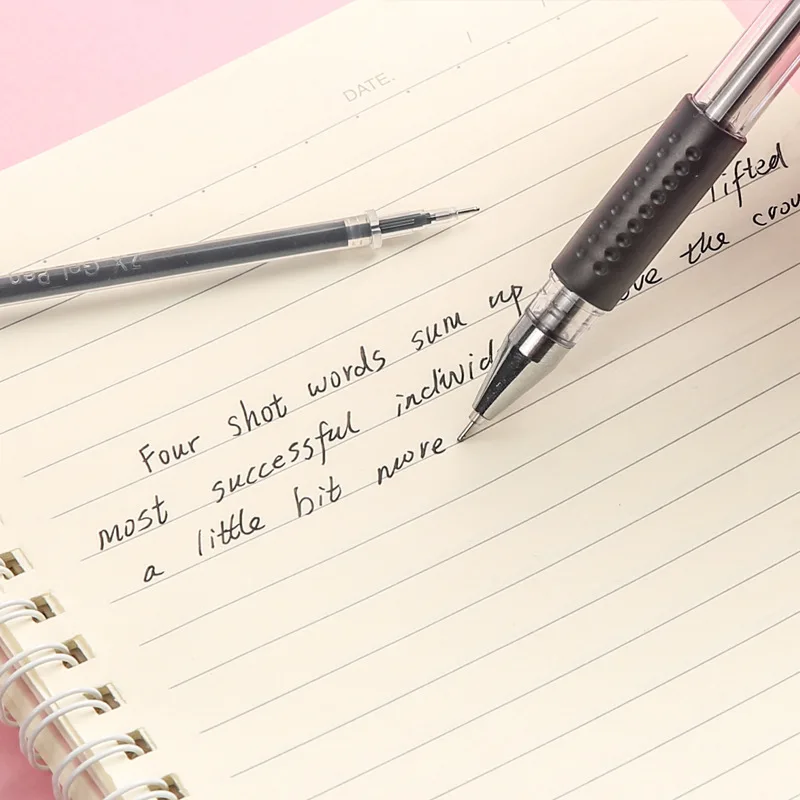 DATE.
ZY Gel Pen
Four shot words sum up lifted
most successful individ ve the crow
a little bit more